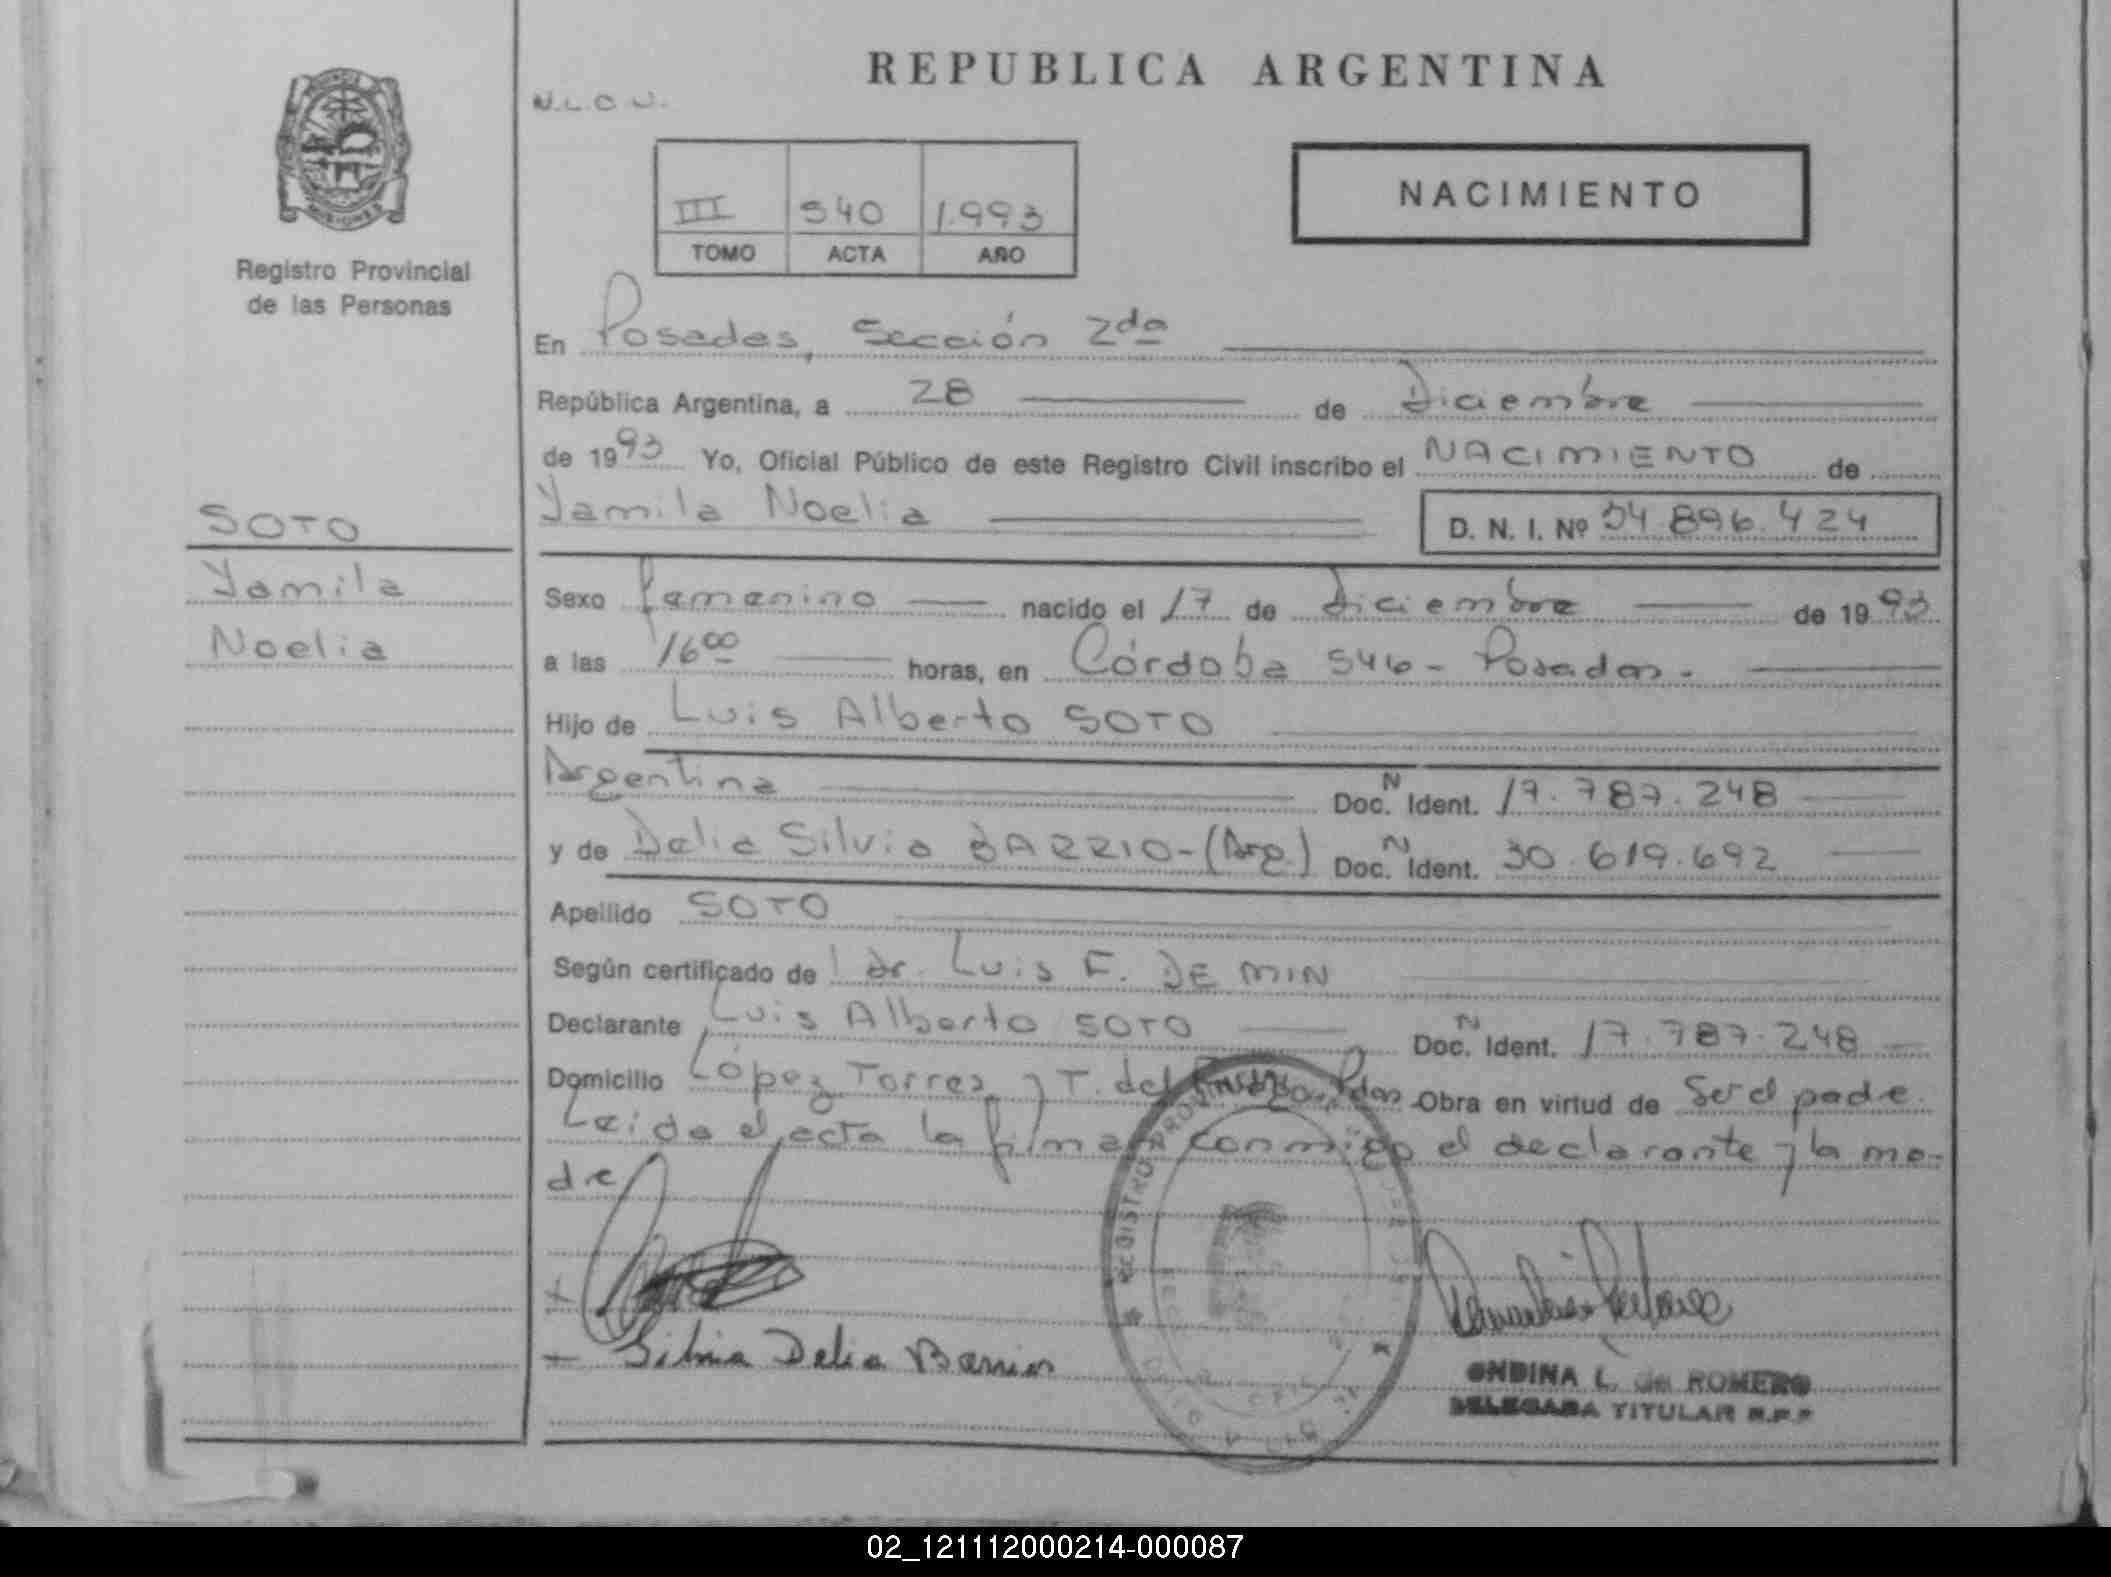 REPUBLICA ARGENTINA
N.L.O.U.
PROVINCIA
MISIONES
Registro Provincial
de las Personas
III 540 1.993
TOMO ACTA AÑO
NACIMIENTO
En Posadas, Sección 2da
República Argentina, a 28 de Diciembre
de 1993 Yo, Oficial Público de este Registro Civil inscribo el NACIMIENTO de
Yamila Noelia D. N. I. Nº 34.896.424
SOTO
Yamila
Noelia
Sexo femenino nacido el 17 de diciembre de 1993
a las 16 00 horas, en Córdoba 546 - Posadas.
Hijo de Luis Alberto SOTO
Argentina Doc. N Ident. 17.787.248
y de Delia Silvia BARRIO - (Arg.) Doc. N Ident. 30.619.692
Apellido SOTO
Según certificado de l dr. Luis F. DE MIN
Declarante Luis Alberto SOTO Doc. N Ident. 17.787.248
Domicilio López Torres y T. del Pdas Obra en virtud de Ser el padre.
Leida el acta la firman conmigo el declarante y la ma-
dre
Silvia Delia Barrios
REGISTRO PROVINCIAL
ONDINA L. de ROMERO
DELEGADA TITULAR R.P.P
02_121112000214-000087